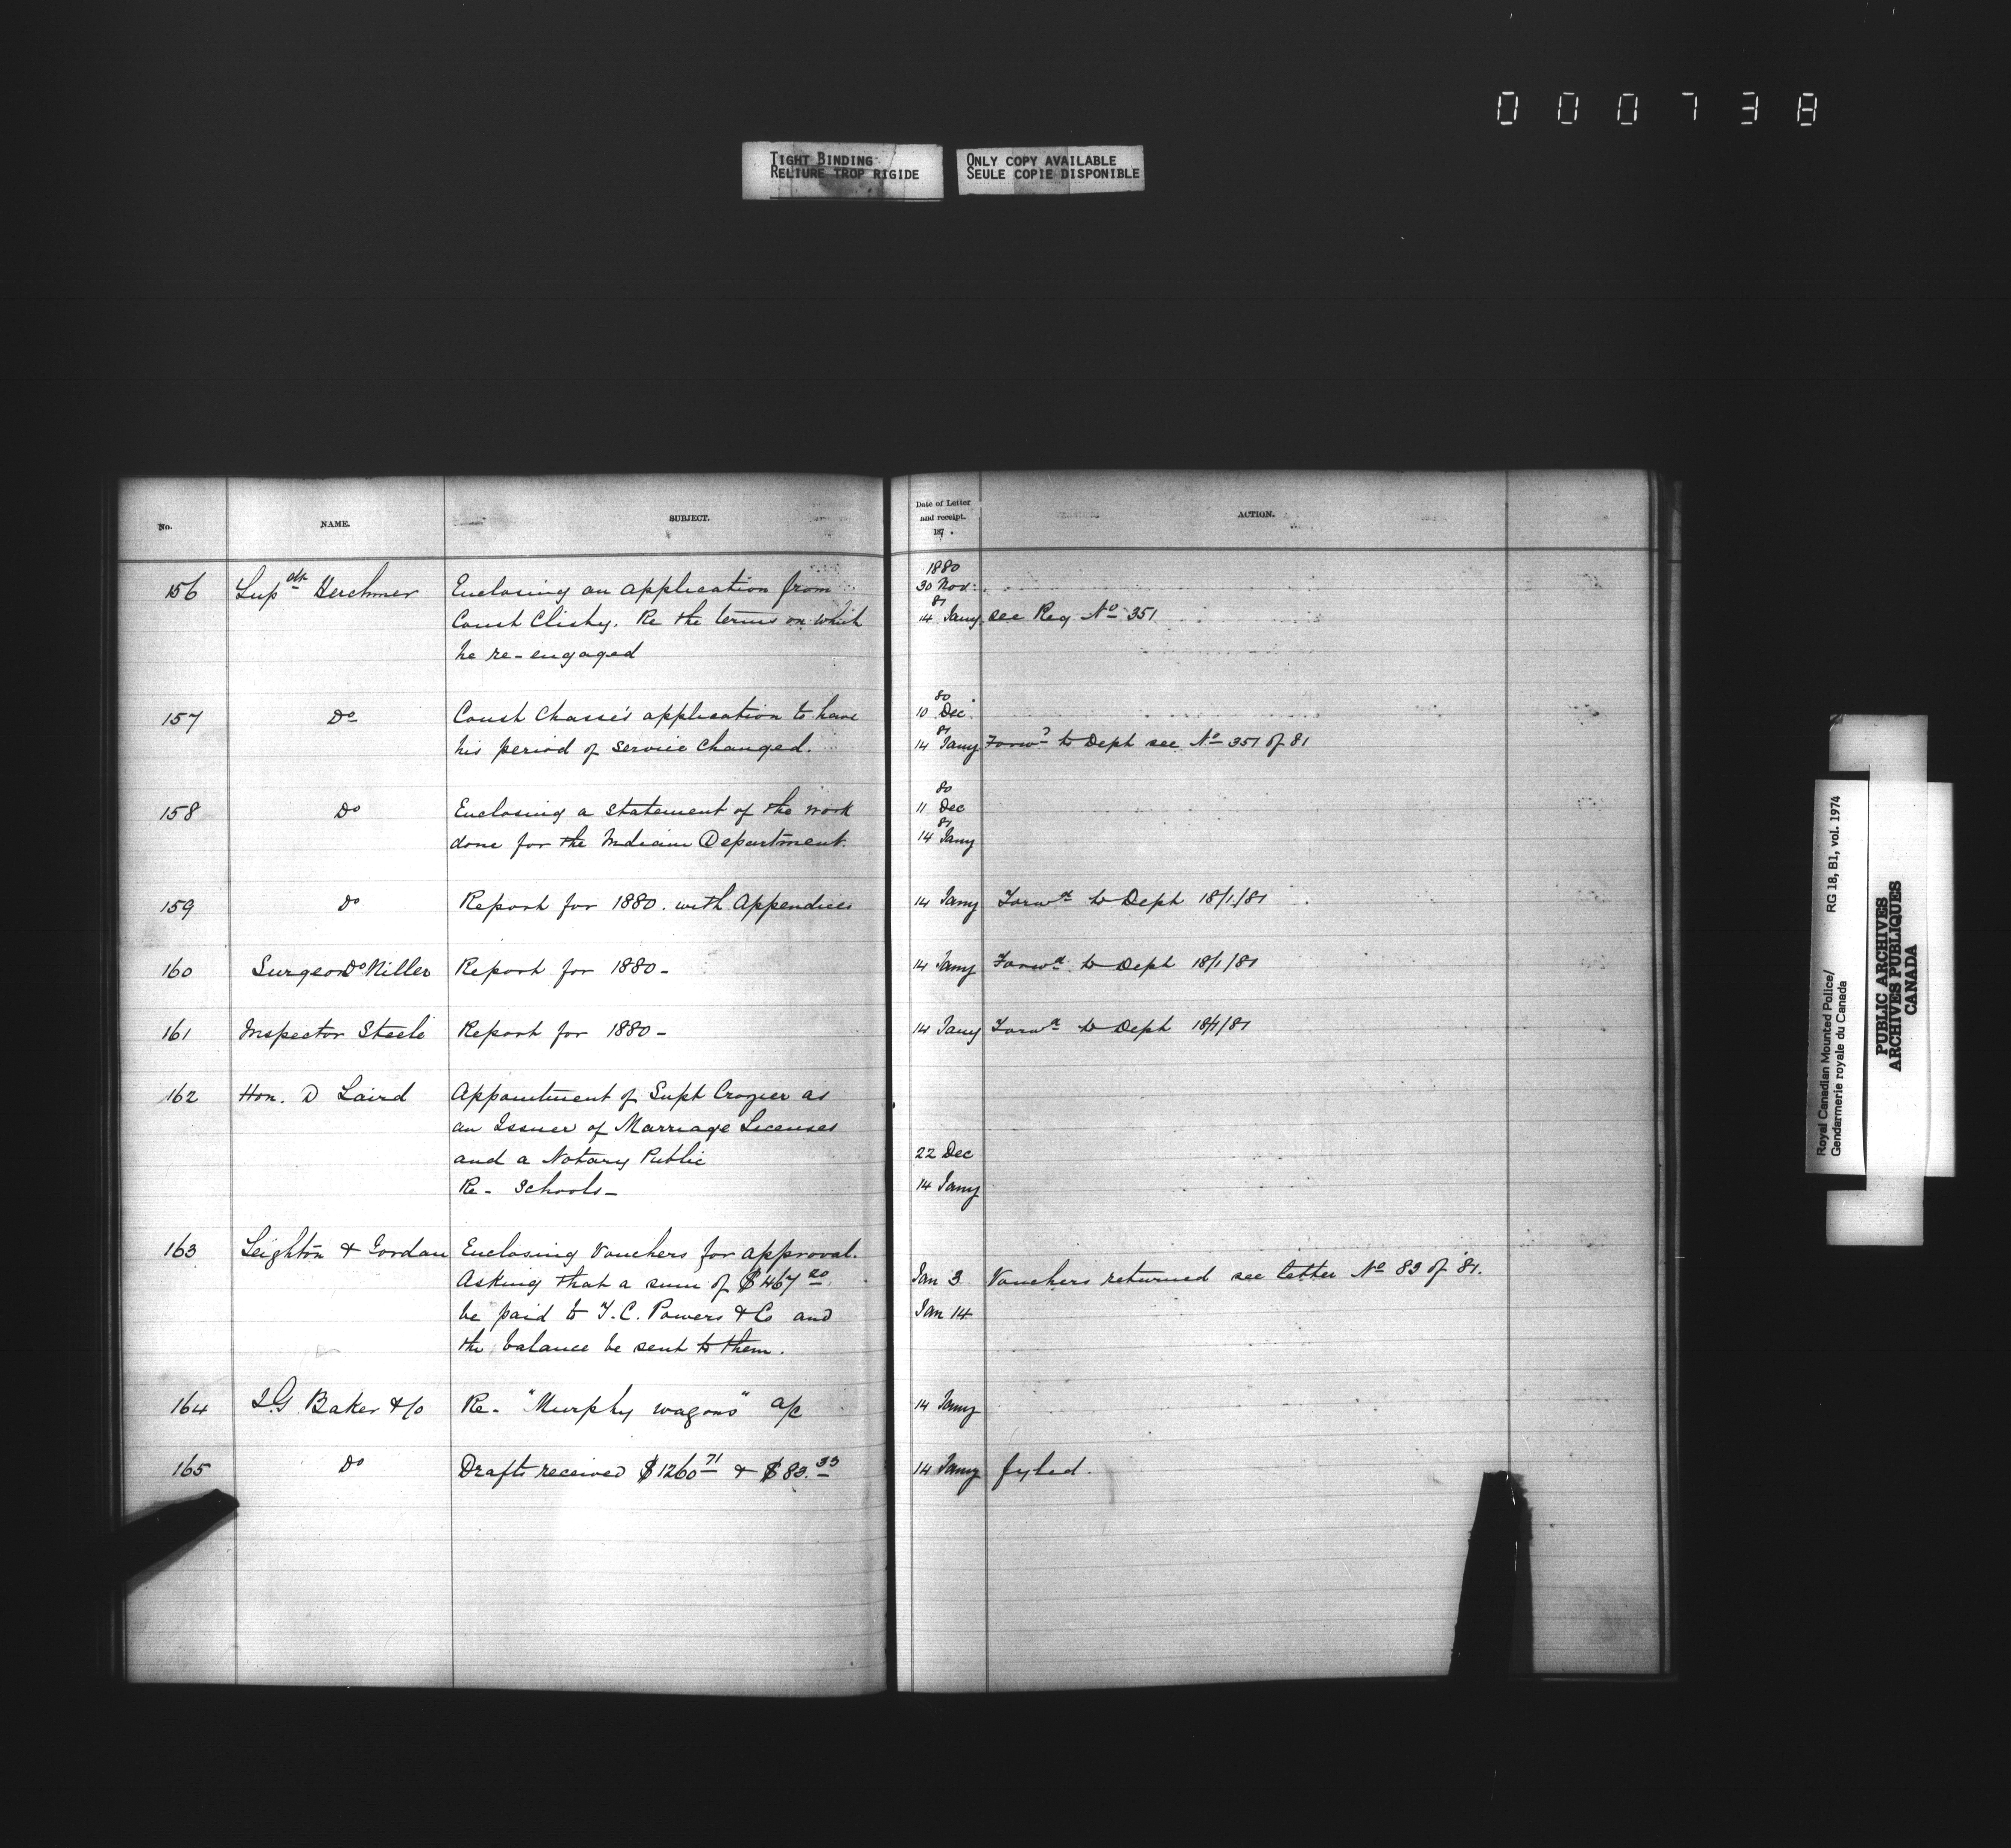 000738
TIGHT BINDING
RELIURE TROP RIGIDE
ONLY COPY AVAILABLE
SEULE COPIE DISPONIBLE
No. NAME. SUBJECT. Date of Letter and receipt. 187 . ACTION.
156 Supdt Herchmer Enclosing an application from 1880 30 Nov.
Const Clisby. Re the terms on which 81 14 Jany see Reg No 351
he re-engaged
157 Do Const Chasse's application to have 80 10 Dec.
his period of service changed. 81 14 Jany Forwd to Dept see No 351 of 81
158 Do Enclosing a statement of the work 80 11 Dec
done for the Indian Department. 81 14 Jany
159 Do Report for 1880. with Appendices 14 Jany Forwd to Dept 18/1/81
160 Surgeon Miller Report for 1880- 14 Jany Forwd to Dept 18/1/81
161 Inspector Steele Report for 1880- 14 Jany Forwd to Dept 18/1/81
162 Hon. D Laird Appointment of Supt Crozier as
an Issuer of Marriage Licenses
and a Notary Public 22 Dec
Re- Schools- 14 Jany
163 Leighton & Jordan Enclosing Vouchers for approval.
Asking that a sum of $467 20 Jan 3 Vouchers returned see letter No 83 of 81.
be paid to T.C. Powers & Co and Jan 14
the balance be sent to them.
164 I.G. Baker & Co Re- "Murphy wagons" a/c 14 Jany
165 Do Drafts received $1260 71 & $83.33 14 Jany fyled.
Royal Canadian Mounted Police/
Gendarmerie royale du Canada
RG 18, B1, vol. 1974
PUBLIC ARCHIVES
ARCHIVES PUBLIQUES
CANADA